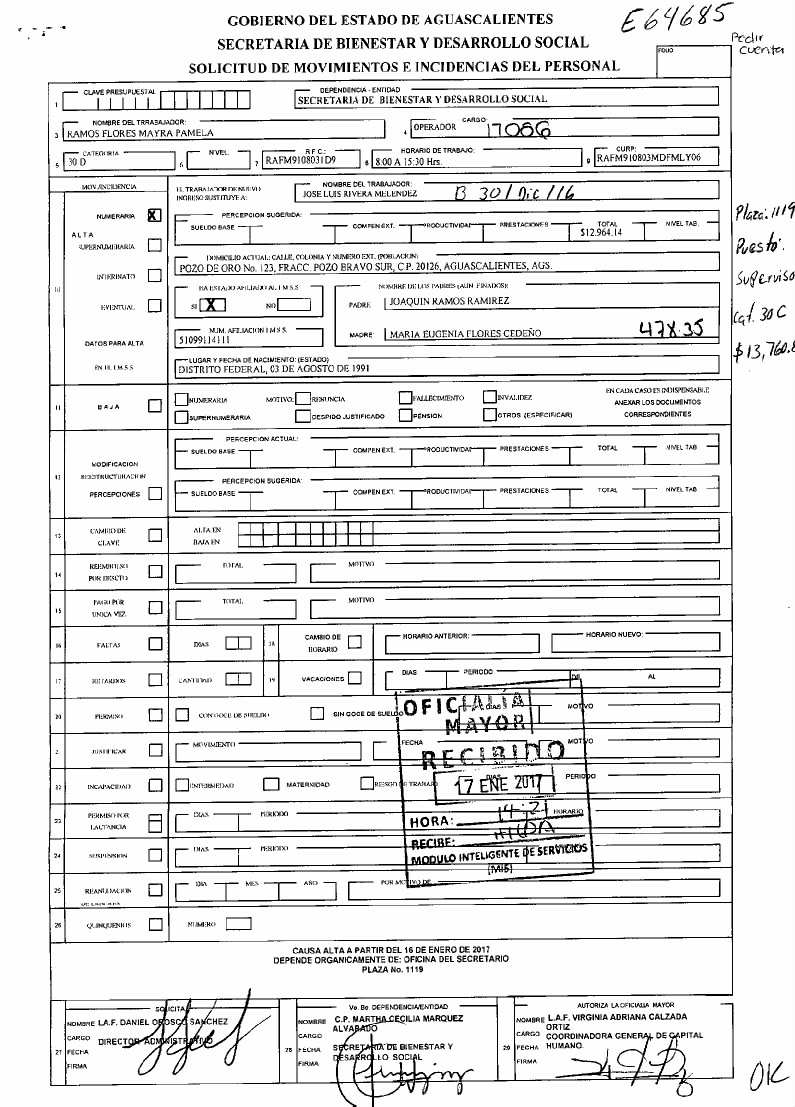 GOBIERNO DEL ESTADO DE AGUASCALIENTES
E64685
SECRETARIA DE BIENESTAR Y DESARROLLO SOCIAL
Pedir cuenta
SOLICITUD DE MOVIMIENTOS E INCIDENCIAS DEL PERSONAL
FOLIO
1 CLAVE PRESUPUESTAL
DEPENDENCIA - ENTIDAD
SECRETARIA DE BIENESTAR Y DESARROLLO SOCIAL
NOMBRE DEL TRRABAJADOR:
3 RAMOS FLORES MAYRA PAMELA
CARGO:
4 OPERADOR 17086
5 CATEGORIA 30 D
6 NIVEL
7 R.F.C. RAFM9108031D9
8 HORARIO DE TRABAJO: 8:00 A 15:30 Hrs.
9 CURP: RAFM910803MDFMLY06
MOV./INCIDENCIA
EL TRABAJADOR DE NUEVO INGRESO SUSTITUYE A:
NOMBRE DEL TRABAJADOR:
JOSE LUIS RIVERA MELENDEZ B 30/Dic/16
NUMERARIA X
PERCEPCION SUGERIDA:
SUELDO BASE COMPEN EXT. PRODUCTIVIDAD PRESTACIONES TOTAL NIVEL TAB.
$12,964.14
Plaza: 1119
Puesto: Supervisor
Cat. 30 C
ALTA
SUPERNUMERARIA
DOMICILIO ACTUAL: CALLE, COLONIA Y NUMERO EXT. (POBLACION)
POZO DE ORO No. 123, FRACC. POZO BRAVO SUR, C.P. 20126, AGUASCALIENTES, AGS.
INTERINATO
HA ESTADO AFILIADO AL I.M.S.S
NOMBRE DE LOS PADRES (AUN FINADOS):
10
EVENTUAL
SI X NO
PADRE JOAQUIN RAMOS RAMIREZ
NUM. AFILIACION I.M.S.S.
51099114111
MADRE: MARIA EUGENIA FLORES CEDEÑO 478.35
DATOS PARA ALTA
EN EL I.M.S.S.
LUGAR Y FECHA DE NACIMIENTO: (ESTADO)
DISTRITO FEDERAL, 03 DE AGOSTO DE 1991
11 BAJA
NUMERARIA MOTIVO: RENUNCIA FALLECIMIENTO INVALIDEZ
SUPERNUMERARIA DESPIDO JUSTIFICADO PENSION OTROS (ESPECIFICAR)
EN CADA CASO ES INDISPENSABLE
ANEXAR LOS DOCUMENTOS
CORRESPONDIENTES
PERCEPCION ACTUAL:
SUELDO BASE COMPEN EXT. PRODUCTIVIDAD PRESTACIONES TOTAL NIVEL TAB
12 MODIFICACION
REESTRUCTURACION
PERCEPCIONES
PERCEPCION SUGERIDA:
SUELDO BASE COMPEN EXT. PRODUCTIVIDAD PRESTACIONES TOTAL NIVEL TAB
13 CAMBIO DE CLAVE
ALTA EN
BAJA EN
14 REEMBOLSO POR DESCTO
TOTAL MOTIVO
15 PAGO POR UNICA VEZ
TOTAL MOTIVO
16 FALTAS DIAS
18 CAMBIO DE HORARIO
HORARIO ANTERIOR: HORARIO NUEVO:
17 RETARDOS CANTIDAD
19 VACACIONES DIAS PERIODO DE AL
20 PERMISO CON GOCE DE SUELDO SIN GOCE DE SUELDO DIAS MOTIVO
JUSTIFICAR MOVIMIENTO FECHA MOTIVO
22 INCAPACIDAD ENFERMEDAD MATERNIDAD RIESGO DE TRABAJO DIAS PERIODO
23 PERMISO POR LACTANCIA DIAS PERIODO HORARIO
24 SUSPENSION DIAS PERIODO
25 REANUDACION DIA MES AÑO POR MOTIVO DE
26 QUINQUENIOS NUMERO
OFICIALÍA
MAYOR
RECIBIDO
17 ENE 2017
HORA: 14:21
RECIBE:
MODULO INTELIGENTE DE SERVICIOS
(MIS)
CAUSA ALTA A PARTIR DEL 16 DE ENERO DE 2017
DEPENDE ORGANICAMENTE DE: OFICINA DEL SECRETARIO
PLAZA No. 1119
27 SOLICITA
NOMBRE L.A.F. DANIEL OROSCO SANCHEZ
CARGO DIRECTOR ADMINISTRATIVO
FECHA
FIRMA
28 Vo. Bo. DEPENDENCIA/ENTIDAD
NOMBRE C.P. MARTHA CECILIA MARQUEZ ALVARADO
CARGO
FECHA SECRETARIA DE BIENESTAR Y DESARROLLO SOCIAL
FIRMA
29 AUTORIZA LA OFICIALIA MAYOR
NOMBRE L.A.F. VIRGINIA ADRIANA CALZADA ORTIZ
CARGO COORDINADORA GENERAL DE CAPITAL HUMANO.
FECHA
FIRMA
OK